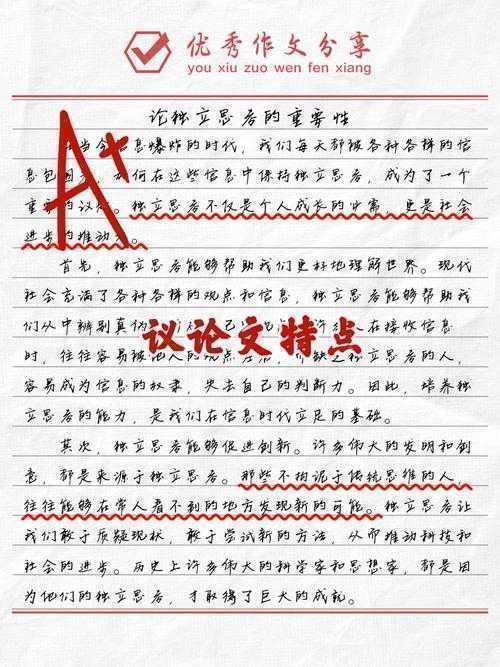 优秀作文分享
you xiu zuo wen fen xiang
论独立思考的重要性
A+
当今信息爆炸的时代，我们每天都被各种各样的信
息包围，如何在这些信息中保持独立思考，成为了一个
重要的议。独立思考不仅是个人成长的必需，更是社会
进步的推动。
首先，独立思考能够帮助我们更好地理解世界。现代
社会充满了各种各样的观点和信息，独立思考能够帮助我
们从中辨别真伪，己在接收信息
议论文特点
时，往往容易被他人的观点左之独立思考的人，
容易成为信息的奴隶，失去自己的判断力。因此，培养独
立思考的能力，是我们在信息时代立足的基础。
其次，独立思考能够促进创新。许多伟大的发明和创
意，都是来源于独立思考。那些不拘泥于传统思维的人，
往往能够在常人看不到的地方发现新的可能。独立思考让
我们敢于质疑现状，敢于尝试新的方法，从而推动科技和
社会的进步。历史上许多伟大的科学家和思想家，都是因
为他们的独立思考，才取得了巨大的成就。